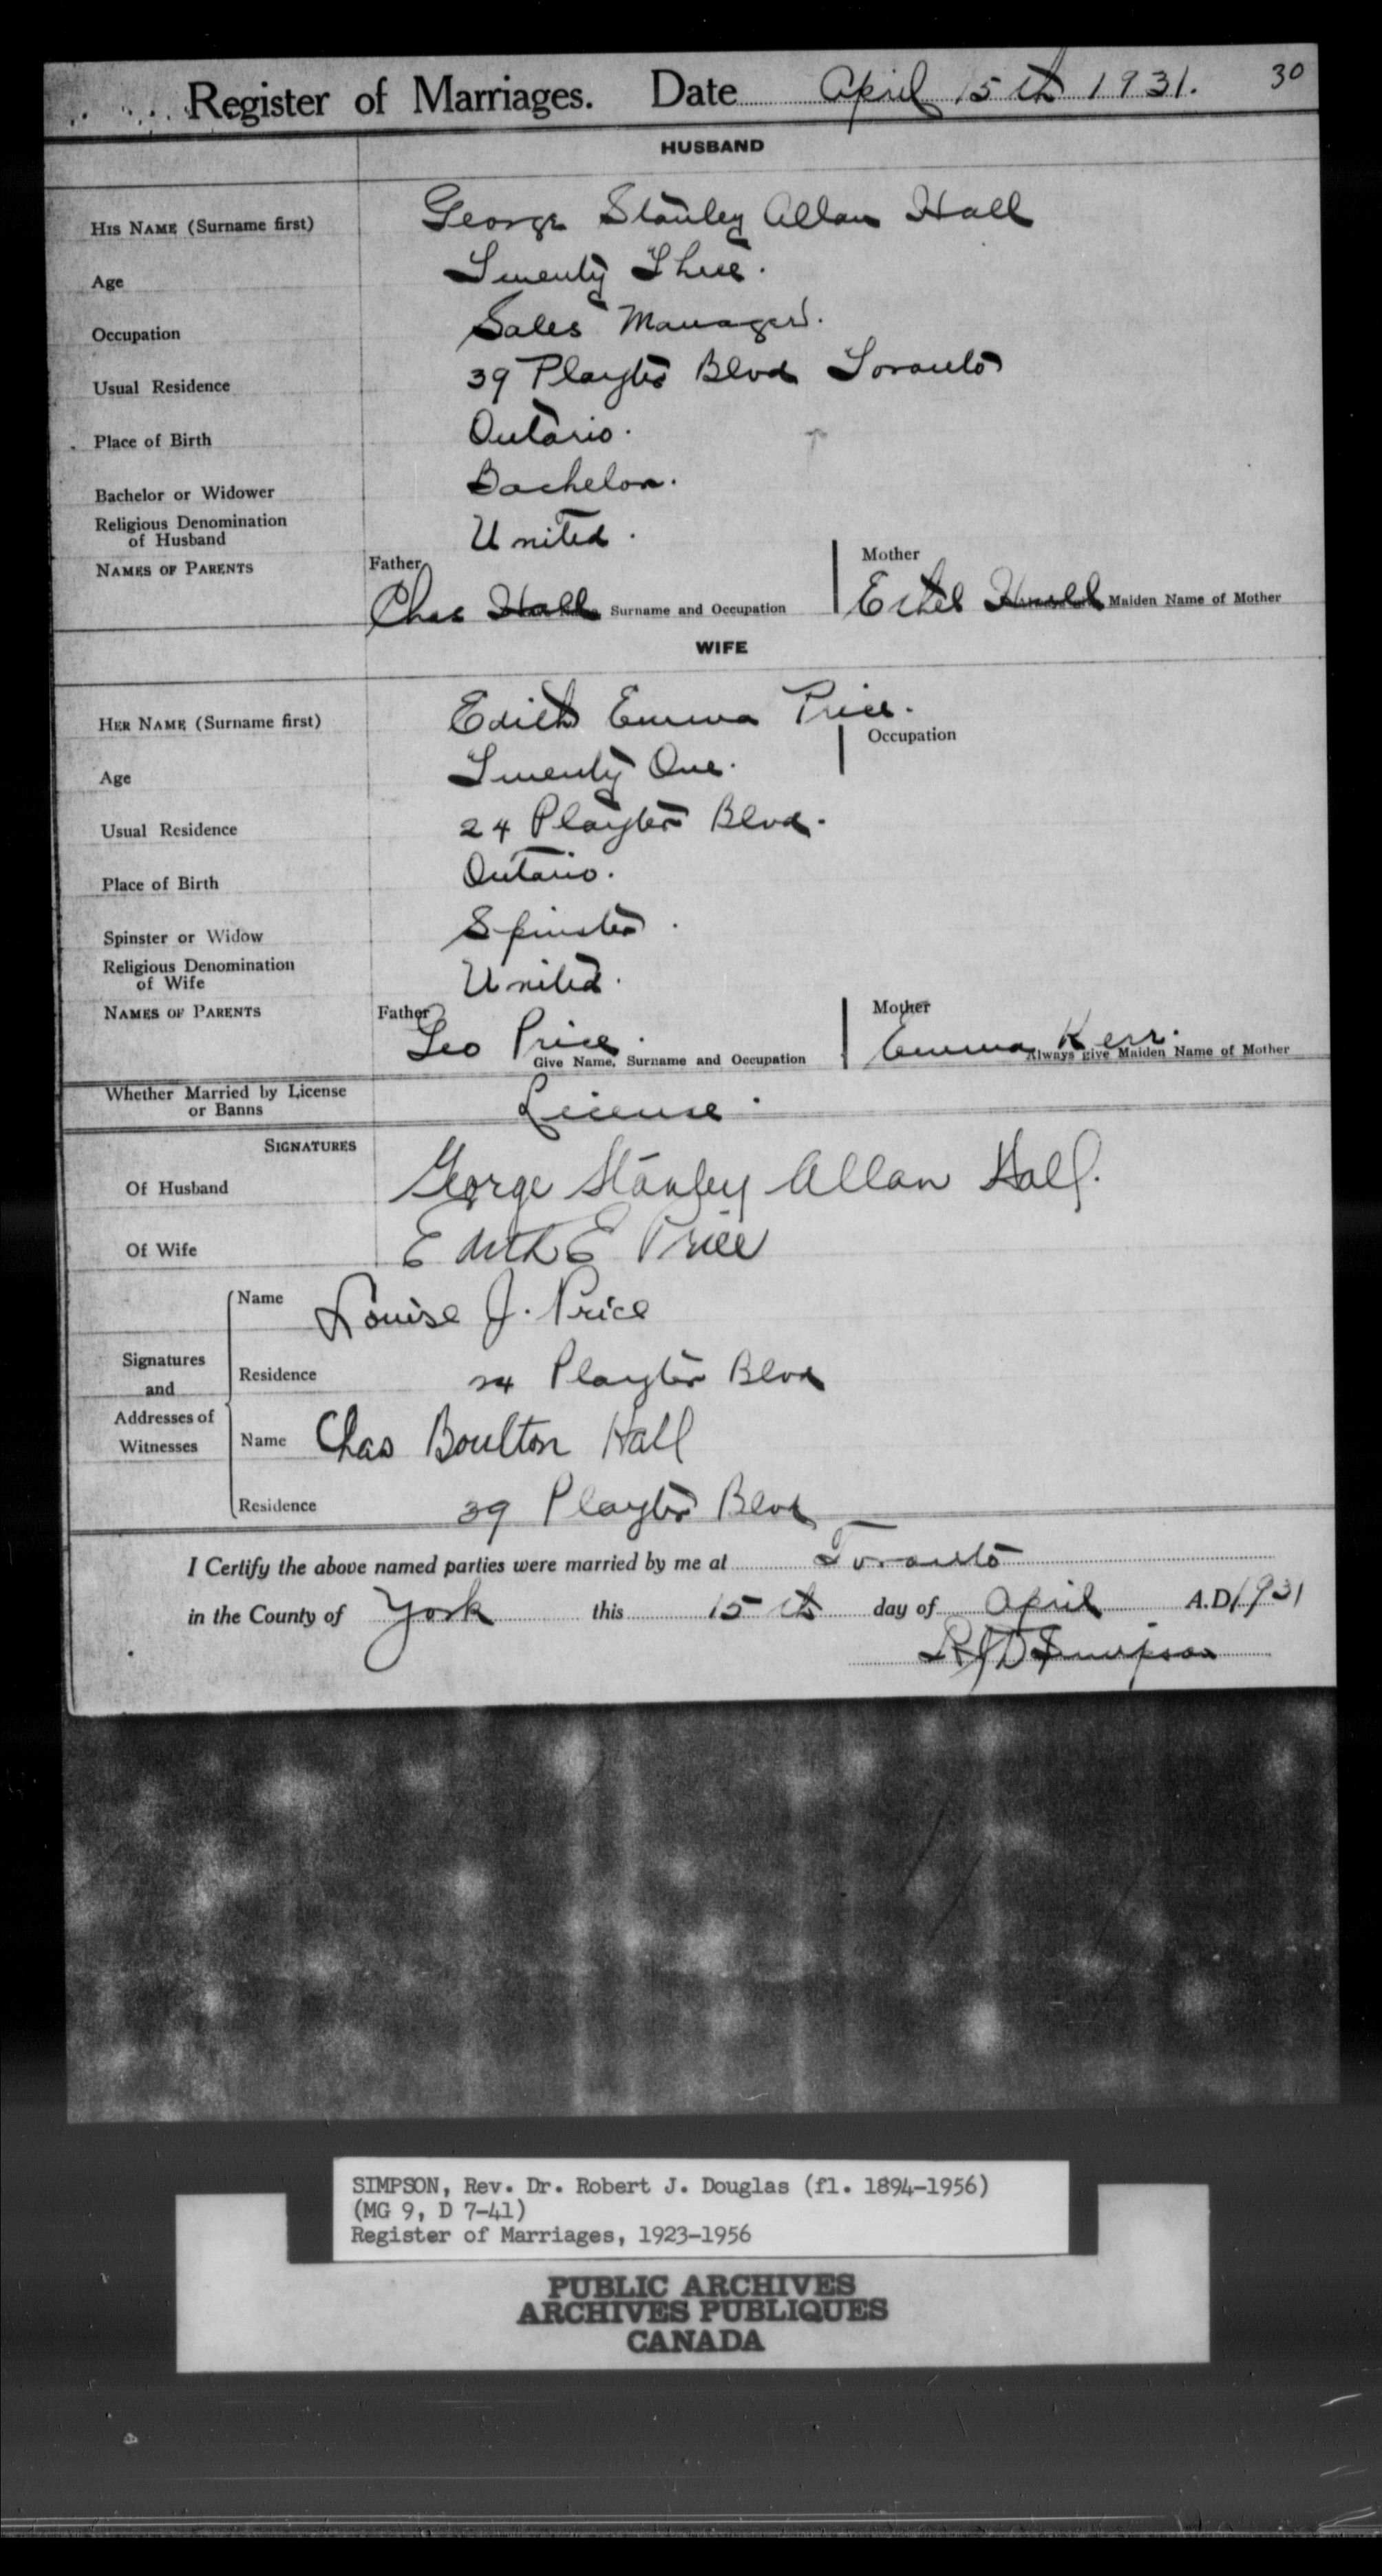 Register of Marriages. Date April 15th 1931. 30
HUSBAND
HIS NAME (Surname first) George Stanley Allan Hall
Age Twenty Three.
Occupation Sales Manager.
Usual Residence 39 Playter Blvd Toronto
Place of Birth Ontario.
Bachelor or Widower Bachelor.
Religious Denomination
of Husband United.
NAMES OF PARENTS Father Mother
Chas Hall Surname and Occupation Ethel Maiden Name of Mother
WIFE
HER NAME (Surname first) Edith Emma Price.
Occupation
Age Twenty One.
Usual Residence 24 Playter Blvd.
Place of Birth Ontario.
Spinster or Widow Spinster.
Religious Denomination
of Wife United.
NAMES OF PARENTS Father Mother
Geo Price. Emma Kerr.
Give Name, Surname and Occupation Always give Maiden Name of Mother
Whether Married by License
or Banns License.
SIGNATURES
Of Husband George Stanley Allan Hall.
Of Wife Edith E Price
Name Louise J. Price
Signatures
and
Residence 24 Playter Blvd
Addresses of
Witnesses
Name Chas Boulton Hall
Residence 39 Playter Blvd
I Certify the above named parties were married by me at Toronto
in the County of York this 15th day of April A.D. 1931
RJD Simpson
SIMPSON, Rev. Dr. Robert J. Douglas (fl. 1894-1956)
(MG 9, D 7-41)
Register of Marriages, 1923-1956
PUBLIC ARCHIVES
ARCHIVES PUBLIQUES
CANADA